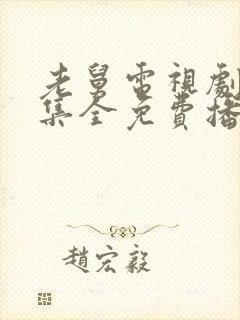 老舅電視劇
集全免費播
趙宏毅